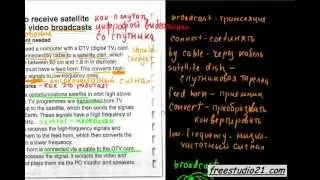 o receive satellite
video broadcasts
как получать
цифровой видео
со спутника
are needed
need a computer with a DTV (digital TV) card.
connected by cable to a satellite dish, which
between 60 cm and 1.8 m in diameter.
must have a feed horn. This converts high-
signals to low frequency ones.
should
communications satellite in orbit high above
TV programmes are transmitted from TV
to the satellite which then sends the signals
Earth. These signals have a frequency of
receives the high-frequency signals and
them to the feed horn, which then converts
to low frequency.
horn is connected via a cable to the DTV card,
processes the signal. It decodes the video and
plays them via the PC monitor and speakers.
broadcast - трансляция
connect - соединять
by cable - через кабель
satellite dish -
спутниковая тарелка
feed horn - приемник
convert - преобразовать
конвертировать
low-frequency - низко-
частотный сигнал
broadcast
freestudio21.com